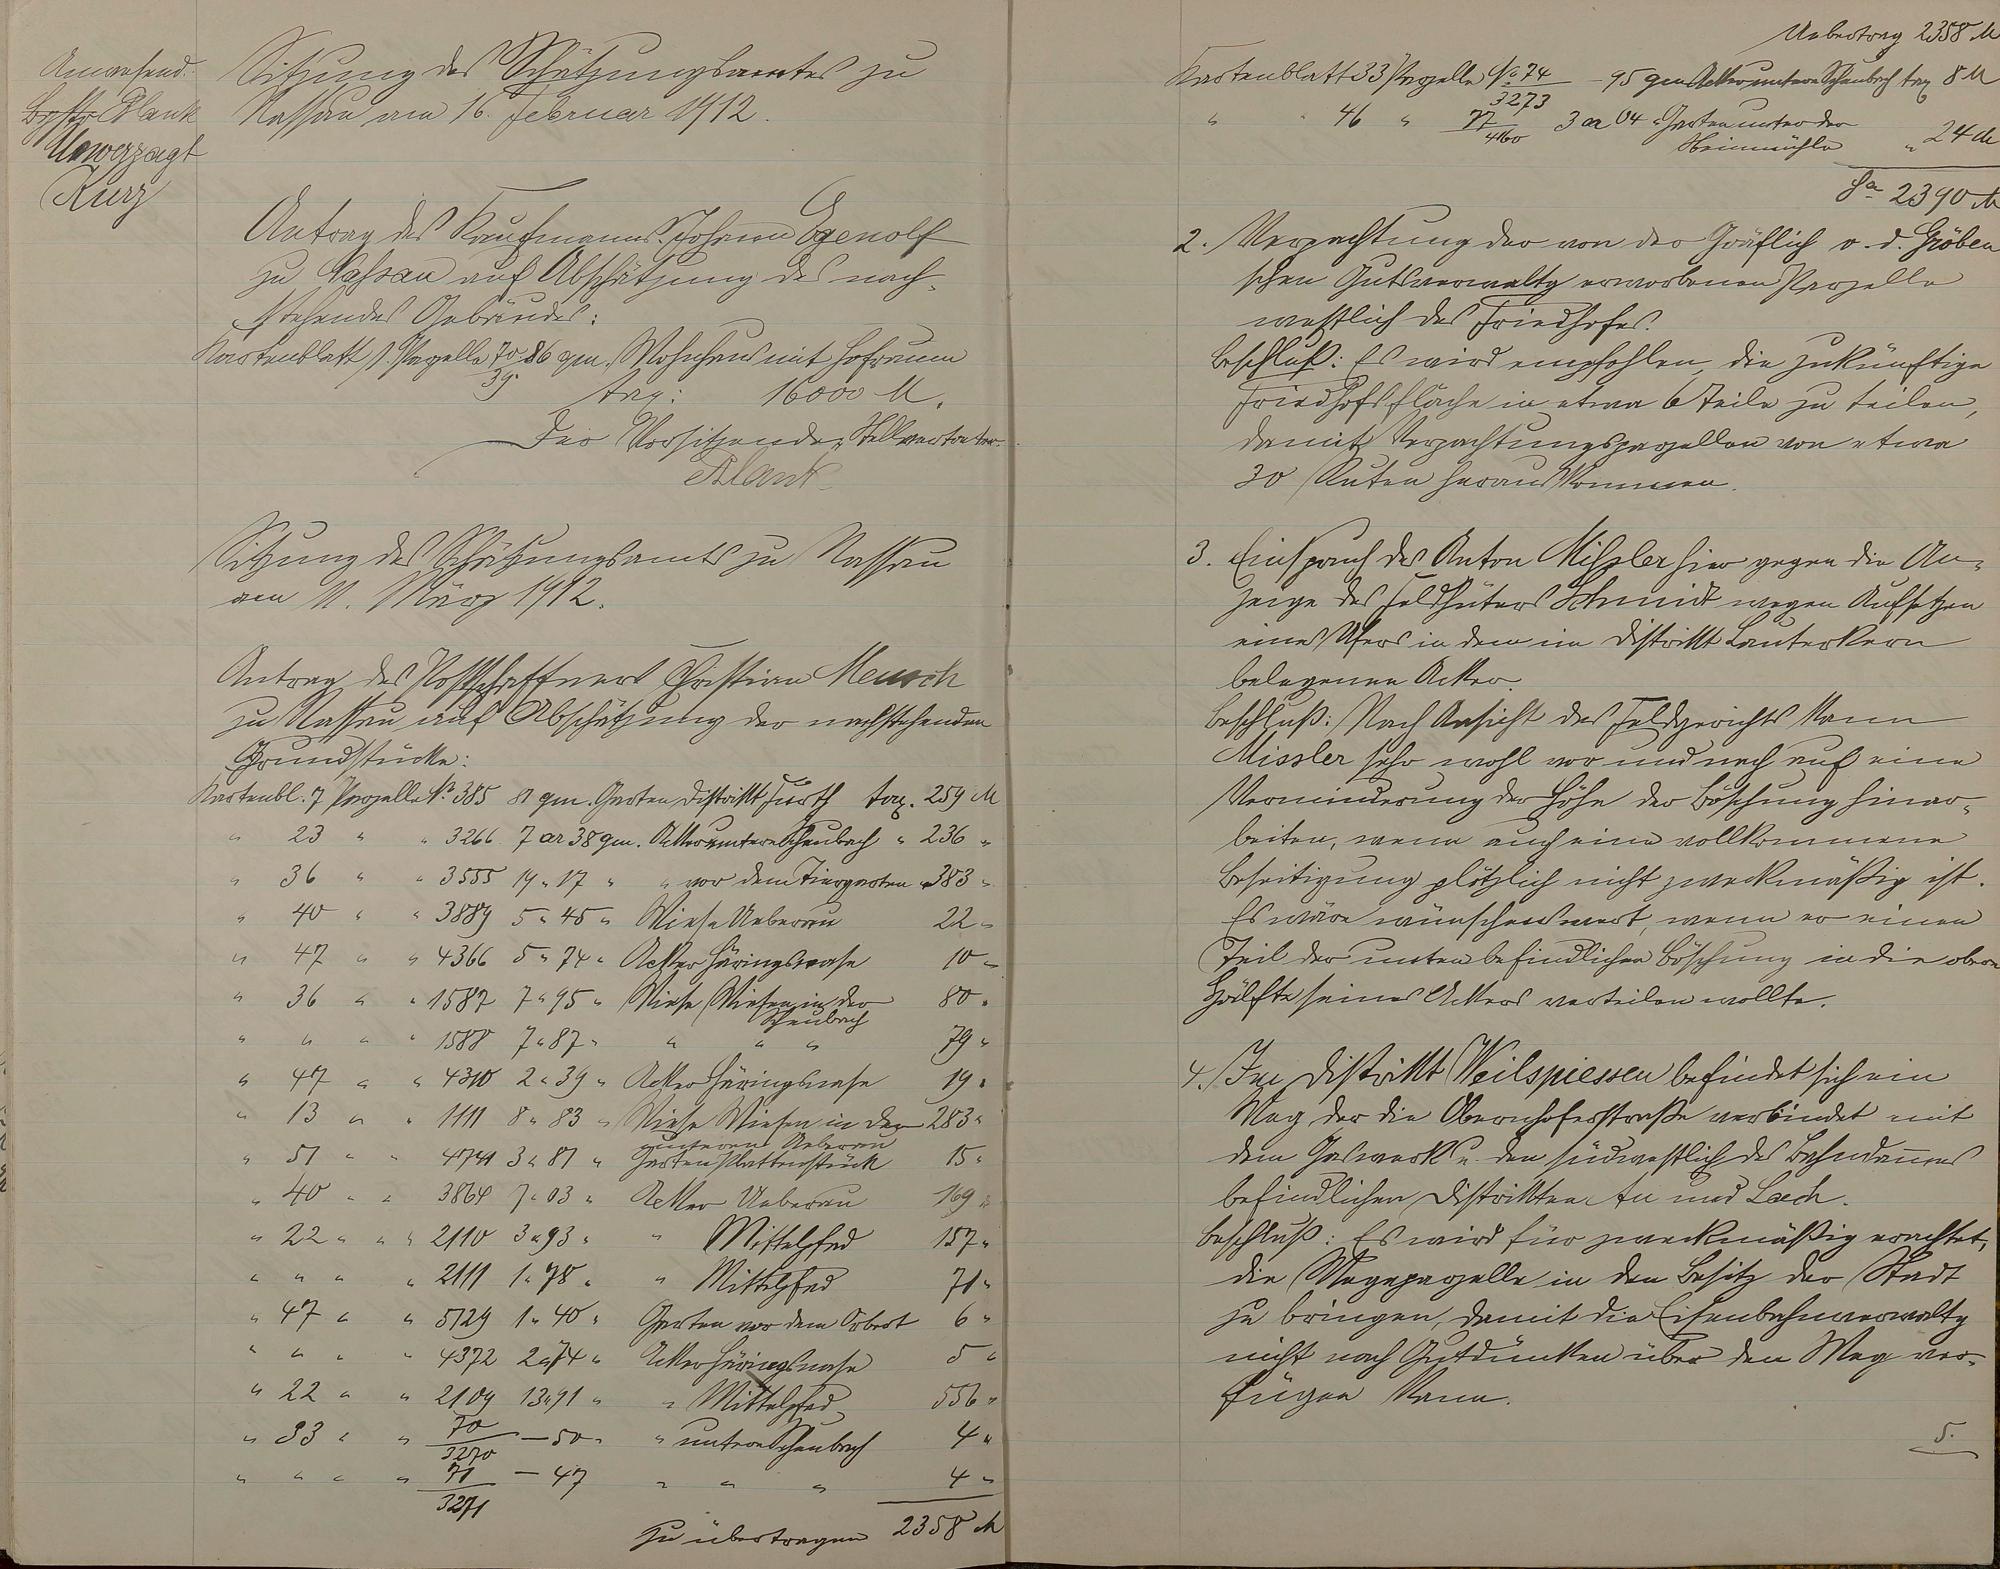 Anwesend:
Plank
Unverzagt
Kurz
Sitzung des Schätzungsamtes zu
Nassau am 16. Februar 1912.
Antrag des Kaufmanns Johann Egenolf
zu Nassau auf Abschätzung des nach-
stehenden Gebäudes:
Kartenblatt 1. Parzelle 70/39 86 qm. Wohnhaus mit Hofraum
tax: 16000 M.
Der Vorsitzende, Stellvertreter
Plank
Sitzung des Schätzungsamts zu Nassau
am 11. März 1912.
Antrag des Postschaffners Christian Meusch
zu Nassau auf Abschätzung der nachstehenden
Grundstücke:
Kartenbl. 7 Parzelle No 385 81 qm. Garten Distrikt Furth tax. 259 M
" 23 " " 3266 7 ar 38 qm. Acker untere Scheubach " 236 "
" 36 " " 3555 19 " 17 " " vor dem Tiergarten " 383 "
" 40 " " 3889 5 " 45 " Wiese Ueberau 22 "
" 47 " " 4366 5 " 74 " Acker Häringsnase 10 "
" 36 " " 1587 7 " 95 " Wiese Wiesen in der Scheubach 80 "
" " " " 1588 7 " 87 " " " " 79 "
" 47 " " 4310 2 " 39 " Acker Häringsnase 19 "
" 13 " " 1111 8 " 83 " Wiese Wiesen in der unteren Ueberau 283 "
" 51 " " 4741 3 " 81 " Garten Plattenstück 15 "
" 40 " " 3864 7 " 03 " Acker Ueberau 169 "
" 22 " " " 2110 3 " 93 " " Mittelpfad 157 "
" " " " 2111 1 " 78 " " Mittelpfad 71 "
" 47 " " 5129 1 " 40 " Garten vor dem 6 "
" " " " 4372 2 " 74 " Acker Häringsnase 5 "
" 22 " " 2109 13 " 91 " " Mittelpfad 556 "
" 33 " " 70/3270 — 50 " " untere Scheubach 4 "
" " " " 71/3271 — 47 " " " 4 "
zu übertragen 2358 M
Uebertrag 2358 M
Kartenblatt 33 Parzelle No 74/3273 — 95 qm Acker untere Scheubach tax 8 M
" " 46 " 77/4160 3 ar 04 " Garten unter der
Steinmühle " 24 M
Sa 2390 M
2. Verpachtung der von der Gräflich v. d. Gröben
schen Gutsverwaltg erworbenen Parzelle
westlich des Friedhofes.
Beschluß: Es wird empfohlen, die zukünftige
Friedhofsfläche in etwa 6 Teile zu teilen,
damit Verpachtungsparzellen von etwa
30 Ruten herauskommen.
3. Einspruch des Anton Missler hier gegen die An-
zeige des Feldhüters Schmidt wegen Aufsetzen
eines Ufers in dem im Distrikt Lauterkern
belegenen Acker.
Beschluß: Nach Ansicht des Feldgerichts kann
Missler sehr wohl vor und nach auf eine
Verminderung der Höhe der Böschung hinar-
beiten, wenn auch eine vollkommene
Beseitigung plötzlich nicht zweckmäßig ist.
Es wäre wünschenswert, wenn er einen
Teil der unten befindlichen Böschung in die obere
Hälfte seines Ackers verteilen wollte.
4. Im Distrikt Weilspiessen befindet sich ein
Weg der die Obernhoferstraße verbindet mit
dem Gaswerk u. den südwestlich des Bahndammes
befindlichen Distrikten Au und Lach.
Beschluß: Es wird für zweckmäßig erachtet,
die Wegeparzelle in den Besitz der Stadt
zu bringen, damit die Eisenbahnverwaltg
nicht nach Gutdünken über den Weg ver-
fügen kann.
5.